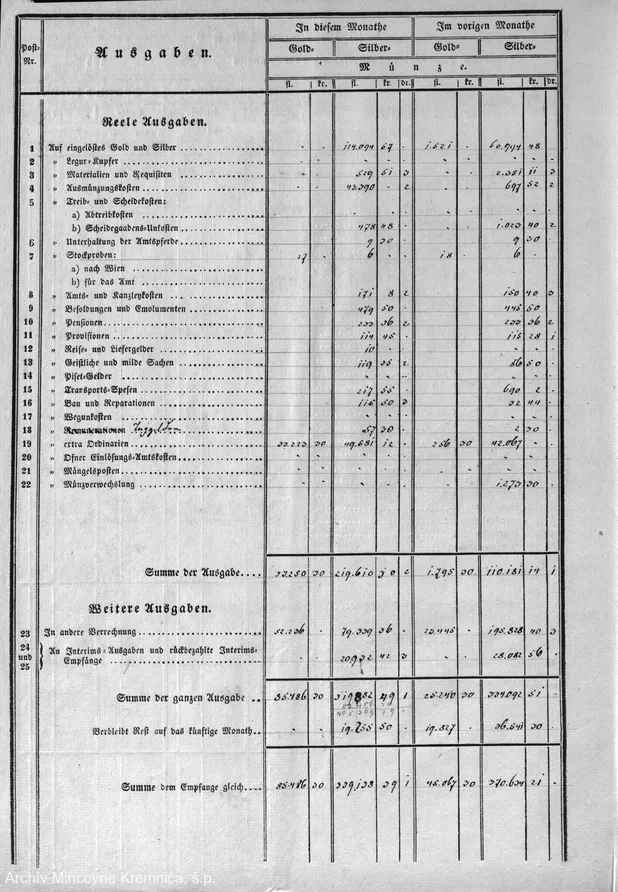 In diesem Monathe Im vorigen Monathe
Post-Nr. Ausgaben. Gold- Silber- Gold- Silber-
Münze.
fl. kr. fl. kr. dr. fl. kr. fl. kr. dr.
Reele Ausgaben.
1 Auf eingelöstes Gold und Silber . . 114.094 57 . 1.521 . 60.944 48
2 „ Legur-Kupfer
3 „ Materialien und Requisiten 519 51 3 2.381 11 3
4 „ Ausmünzungskosten 43.390 . 2 697 52 2
5 „ Treib- und Scheidekosten:
a) Abtreibkosten
b) Scheidegaadens-Unkosten 478 48 . 1.023 40 2
6 „ Unterhaltung der Amtspferde 9 30 . 9 30
7 „ Stockproben: 17 . 6 . . 18 . 6
a) nach Wien
b) für das Amt
8 „ Amts- und Kanzleykosten 171 8 2 150 40 3
9 „ Besoldungen und Emolumenten 479 50 445 50
10 „ Pensionen 233 36 2 233 36 2
11 „ Provisionen 114 45 . 115 28 1
12 „ Reise- und Liefergelder 10
13 „ Geistliche und milde Sachen 119 35 2 56 50
14 „ Piset-Gelder
15 „ Transports-Spesen 217 55 690 2
16 „ Bau und Reparationen 115 50 3 32 44
17 „ Wegunkosten
18 „ Remunerationen 57 30 2 30
19 „ extra Ordinarien 33.223 30 49.581 12 . 256 30 42.067
20 „ Ofner Einlösungs-Amtskosten
21 „ Mängelsposten
22 „ Münzverwechslung 1.273 30
Summe der Ausgabe 33.250 30 219.610 30 2 1.795 30 110.181 14 1
Weitere Ausgaben.
23 In andere Verrechnung 52.236 . 79.339 36 . 23.445 . 195.828 40 3
24 und 25 An Interims-Ausgaben und rückbezahlte Interims-Empfänge 20932 42 3 28.082 56
Summe der ganzen Ausgabe 85.486 30 319.882 49 1 25.240 30 334.092 51
Verbleibt Rest auf das künftige Monath 19.255 50 . 19.827 . 36.541 30
Summe dem Empfange gleich 85.486 30 339.138 39 1 45.067 30 370.634 21
Archív Mincovne Kremnica, š.p.